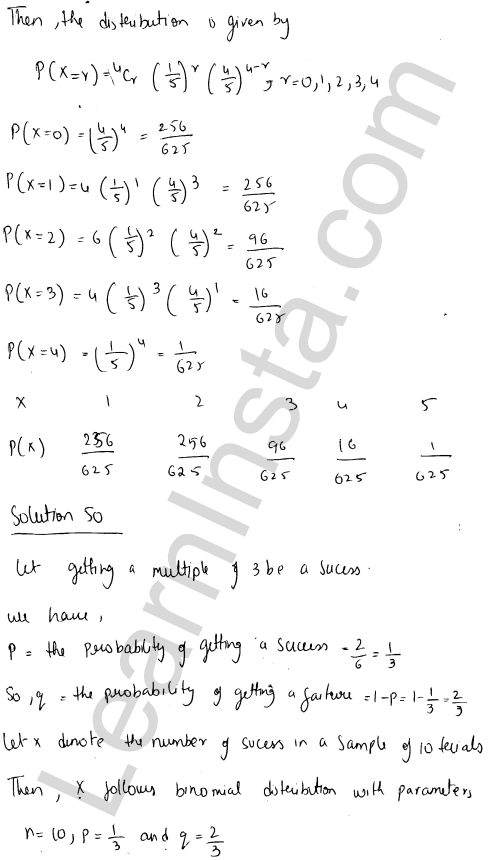 Then, the distribution is given by
P(X=r) = ⁴Cᵣ (1/5)^r (4/5)^4-r, r=0,1,2,3,4
P(X=0) = (4/5)^4 = 256/625
P(X=1) = 4 (1/5)^1 (4/5)^3 = 256/625
P(X=2) = 6 (1/5)^2 (4/5)^2 = 96/625
P(X=3) = 4 (1/5)^3 (4/5)^1 = 16/625
P(X=4) = (1/5)^4 = 1/625
X 1 2 3 4 5
P(X) 256/625 256/625 96/625 16/625 1/625
Solution 50
Let getting a multiple of 3 be a sucess.
we have,
P = the probability of getting a success = 2/6 = 1/3
So, q = the probability of getting a failure = 1-P = 1-1/3 = 2/3
Let x denote the number of sucess in a sample of 10 trials
Then, X follows binomial distribution with parameters
n=10, P=1/3 and q=2/3
LearnInsta.com